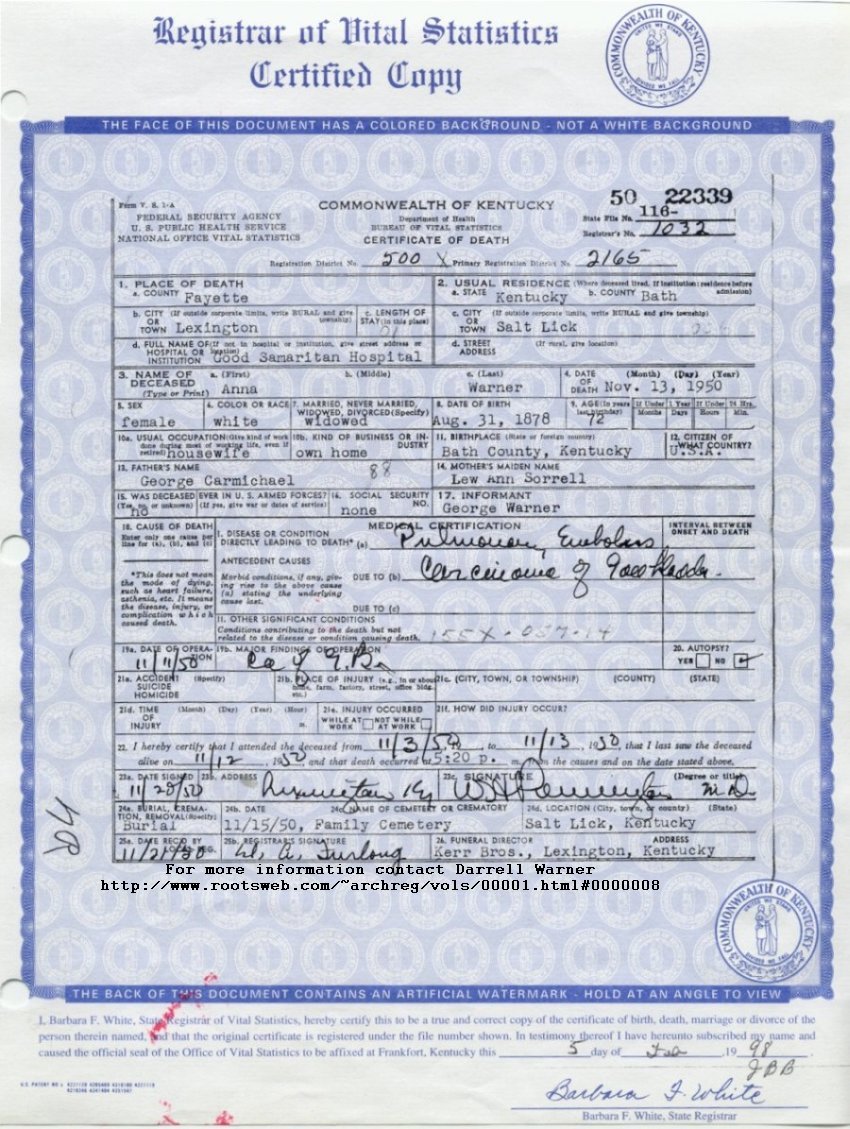 Registrar of Vital Statistics
Certified Copy
COMMONWEALTH OF KENTUCKY
UNITED WE STAND
DIVIDED WE FALL
THE FACE OF THIS DOCUMENT HAS A COLORED BACKGROUND - NOT A WHITE BACKGROUND
Form V. S. 1-A
FEDERAL SECURITY AGENCY
U. S. PUBLIC HEALTH SERVICE
NATIONAL OFFICE VITAL STATISTICS
COMMONWEALTH OF KENTUCKY
Department of Health
BUREAU OF VITAL STATISTICS
CERTIFICATE OF DEATH
50 22339
State File No. 116-
Registrar's No. 1032
Registration District No. 500 X Primary Registration District No. 2165
1. PLACE OF DEATH
a. COUNTY Fayette
2. USUAL RESIDENCE (Where deceased lived. If institution: residence before admission)
a. STATE Kentucky b. COUNTY Bath
b. CITY (If outside corporate limits, write RURAL and give township)
OR
TOWN Lexington
c. LENGTH OF
STAY (in this place)
c. CITY (If outside corporate limits, write RURAL and give township)
OR
TOWN Salt Lick
d. FULL NAME OF (If not in hospital or institution, give street address or location)
HOSPITAL OR
INSTITUTION Good Samaritan Hospital
d. STREET (If rural, give location)
ADDRESS
3. NAME OF DECEASED
(Type or Print)
a. (First) Anna
b. (Middle)
c. (Last) Warner
4. DATE OF DEATH (Month) (Day) (Year)
Nov. 13, 1950
5. SEX
female
6. COLOR OR RACE
white
7. MARRIED, NEVER MARRIED,
WIDOWED, DIVORCED (Specify)
widowed
8. DATE OF BIRTH
Aug. 31, 1878
9. AGE (In years last birthday)
72
If Under 1 Year
Months Days
If Under 24 Hrs.
Hours Min.
10a. USUAL OCCUPATION (Give kind of work done during most of working life, even if retired) housewife
10b. KIND OF BUSINESS OR INDUSTRY
own home
11. BIRTHPLACE (State or foreign country)
Bath County, Kentucky
12. CITIZEN OF WHAT COUNTRY?
U.S.A.
13. FATHER'S NAME
George Carmichael
88
14. MOTHER'S MAIDEN NAME
Lew Ann Sorrell
15. WAS DECEASED EVER IN U. S. ARMED FORCES?
(Yes, no, or unknown) (If yes, give war or dates of service)
no
16. SOCIAL SECURITY NO.
none
17. INFORMANT
George Warner
18. CAUSE OF DEATH
Enter only one cause per line for (a), (b), and (c)
*This does not mean the mode of dying, such as heart failure, asthenia, etc. It means the disease, injury, or complication which caused death.
MEDICAL CERTIFICATION
INTERVAL BETWEEN
ONSET AND DEATH
I. DISEASE OR CONDITION
DIRECTLY LEADING TO DEATH* (a) Pulmonary Embolus
ANTECEDENT CAUSES
Morbid conditions, if any, giving rise to the above cause (a) stating the underlying cause last.
DUE TO (b) Carcinoma of Gall bladder
DUE TO (c)
II. OTHER SIGNIFICANT CONDITIONS
Conditions contributing to the death but not
related to the disease or condition causing death. 155X
19a. DATE OF OPERATION
11/11/50
19b. MAJOR FINDINGS OF OPERATION
Ca of G.B.
20. AUTOPSY?
YES NO
21a. ACCIDENT (Specify)
SUICIDE
HOMICIDE
21b. PLACE OF INJURY (e.g., in or about home, farm, factory, street, office bldg., etc.)
21c. (CITY, TOWN, OR TOWNSHIP) (COUNTY) (STATE)
21d. TIME (Month) (Day) (Year) (Hour)
OF
INJURY m.
21e. INJURY OCCURRED
WHILE AT WORK NOT WHILE AT WORK
21f. HOW DID INJURY OCCUR?
22. I hereby certify that I attended the deceased from 11/3/50, to 11/13, 1950, that I last saw the deceased
alive on 11/12, 1950, and that death occurred at 5:20 p. m., from the causes and on the date stated above.
23a. DATE SIGNED
11/20/50
23b. ADDRESS
Lexington Ky
23c. SIGNATURE (Degree or title)
M.D.
24a. BURIAL, CREMATION, REMOVAL (Specify)
Burial
24b. DATE
11/15/50,
24c. NAME OF CEMETERY OR CREMATORY
Family Cemetery
24d. LOCATION (City, town, or county) (State)
Salt Lick, Kentucky
25a. DATE REC'D BY LOCAL REG.
11/21/50
25b. REGISTRAR'S SIGNATURE
W. A. Furlong
26. FUNERAL DIRECTOR ADDRESS
Kerr Bros., Lexington, Kentucky
For more information contact Darrell Warner
http://www.rootsweb.com/~archreg/vols/00001.html#0000008
COMMONWEALTH OF KENTUCKY
THE BACK OF THIS DOCUMENT CONTAINS AN ARTIFICIAL WATERMARK - HOLD AT AN ANGLE TO VIEW
I, Barbara F. White, State Registrar of Vital Statistics, hereby certify this to be a true and correct copy of the certificate of birth, death, marriage or divorce of the
person therein named, and that the original certificate is registered under the file number shown. In testimony thereof I have hereunto subscribed my name and
caused the official seal of the Office of Vital Statistics to be affixed at Frankfort, Kentucky this 5 day of Feb, 1998.
JBB
Barbara F. White
Barbara F. White, State Registrar